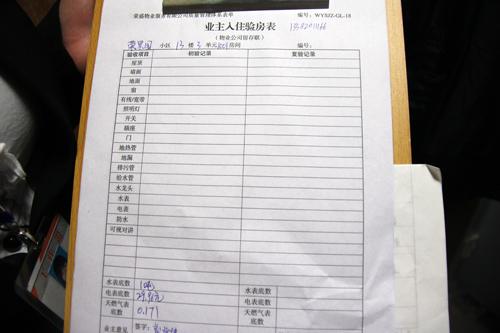 荣盛物业服务有限公司质量管理体系表单 编号：WYSJZ-GL-18
业主入住验房表
（物业公司留存联） 编号：
小区 13 楼 3 单元 房间
验收项目 初验记录 复验记录
屋顶
墙面
地面
窗
有线/宽带
照明灯
开关
插座
门
地热管
地漏
排污管
给水管
水龙头
水表
电表
防水
可视对讲
水表底数 水表底数
电表底数 电表底数
天燃气表底数 0.171 天燃气表底数
业主意见 签字：